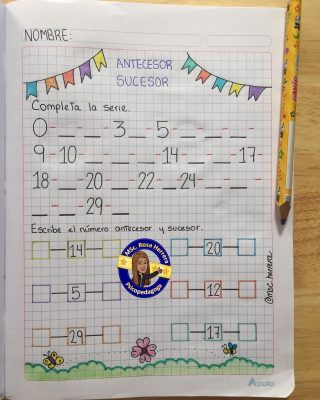 NOMBRE:
ANTECESOR
SUCESOR
Completa la serie.
0-__-__-3__-5-__-__-__-
9-10-__-__-__-14-__-__-17-
18-__-20-__-22-__24-__-__-
__-__-29-__
Escribe el número antecesor y sucesor.
14 20
MSc. Rosa Herrera
Psicopedagoga
5 12
29 17
@msc.herrera
Apolo